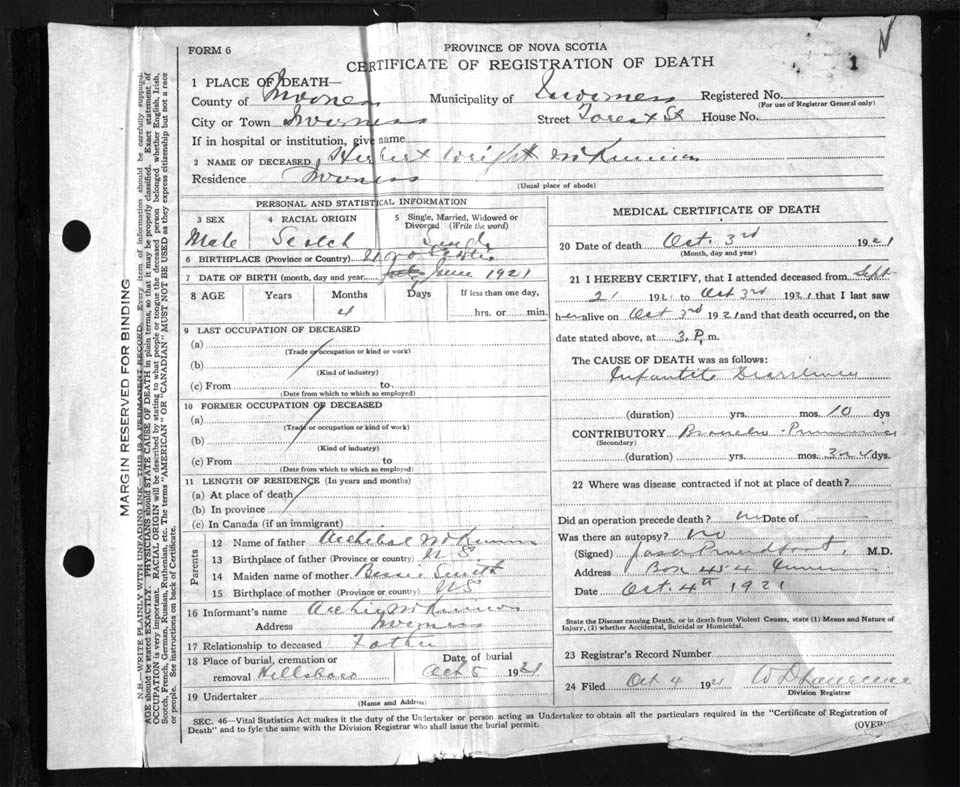 FORM 6
PROVINCE OF NOVA SCOTIA
CERTIFICATE OF REGISTRATION OF DEATH
1
1 PLACE OF DEATH—
County of Inverness Municipality of Inverness Registered No.
(For use of Registrar General only)
City or Town Inverness Street Forest St House No.
If in hospital or institution, give name
2 NAME OF DECEASED Herbert Wright McKinnon
Residence Inverness
(Usual place of abode)
PERSONAL AND STATISTICAL INFORMATION
3 SEX 4 RACIAL ORIGIN 5 Single, Married, Widowed or Divorced (Write the word)
Male Scotch Single
6 BIRTHPLACE (Province or Country)
7 DATE OF BIRTH (month, day and year) June 1921
8 AGE Years Months Days If less than one day,
4 hrs. or min.
9 LAST OCCUPATION OF DECEASED
(a)
(Trade or occupation or kind or work)
(b)
(Kind of industry)
(c) From to
(Date from which to which so employed)
10 FORMER OCCUPATION OF DECEASED
(a)
(Trade or occupation or kind of work)
(b)
(Kind of industry)
(c) From to
(Date from which to which so employed)
11 LENGTH OF RESIDENCE (In years and months)
(a) At place of death
(b) In province
(c) In Canada (if an immigrant)
Parents
12 Name of father Archibal McKinnon
13 Birthplace of father (Province or country) N S
14 Maiden name of mother Bessie Smith
15 Birthplace of mother (Province or country) NS
16 Informant's name Archie McKinnon
Address Inverness
17 Relationship to deceased Father
18 Place of burial, cremation or removal Hillsboro Date of burial Oct 5 1921
19 Undertaker
(Name and Address)
MEDICAL CERTIFICATE OF DEATH
20 Date of death Oct. 3rd 1921
(Month, day and year)
21 I HEREBY CERTIFY, that I attended deceased from Sept
21 1921 to Oct 3rd 1921 that I last saw
her alive on Oct 3rd 1921 and that death occurred, on the
date stated above, at 3 P. m.
The CAUSE OF DEATH was as follows:
Infantile Diarrhoea
(duration) yrs. mos. 10 dys
CONTRIBUTORY Broncho-Pneumonia
(Secondary)
(duration) yrs. mos. dys.
22 Where was disease contracted if not at place of death?
Did an operation precede death? no Date of
Was there an autopsy? no
(Signed) M.D.
Address Box 454 Inverness
Date Oct. 4th 1921
State the Disease causing Death, or in death from Violent Causes, state (1) Means and Nature of Injury, (2) whether Accidental, Suicidal or Homicidal.
23 Registrar's Record Number
24 Filed Oct 4 1921 W D Lawrence
Division Registrar
SEC. 46—Vital Statistics Act makes it the duty of the Undertaker or person acting as Undertaker to obtain all the particulars required in the "Certificate of Registration of
Death" and to fyle the same with the Division Registrar who shall issue the burial permit.
(OVER)
MARGIN RESERVED FOR BINDING
N.B.—WRITE PLAINLY WITH UNFADING INK—THIS IS A PERMANENT RECORD. Every item of information should be carefully supplied.
AGE should be stated EXACTLY. PHYSICIANS should STATE CAUSE OF DEATH in plain terms, so that it may be properly classified. Exact statement of
OCCUPATION is very important. RACIAL ORIGIN will be described by stating to what people or tongue the deceased person belonged whether English, Irish,
Scotch, French, German, Russian, Ruthenian, etc. The terms "AMERICAN" or "CANADIAN" MUST NOT BE USED as they express citizenship but not a race
or people. See instructions on back of Certificate.